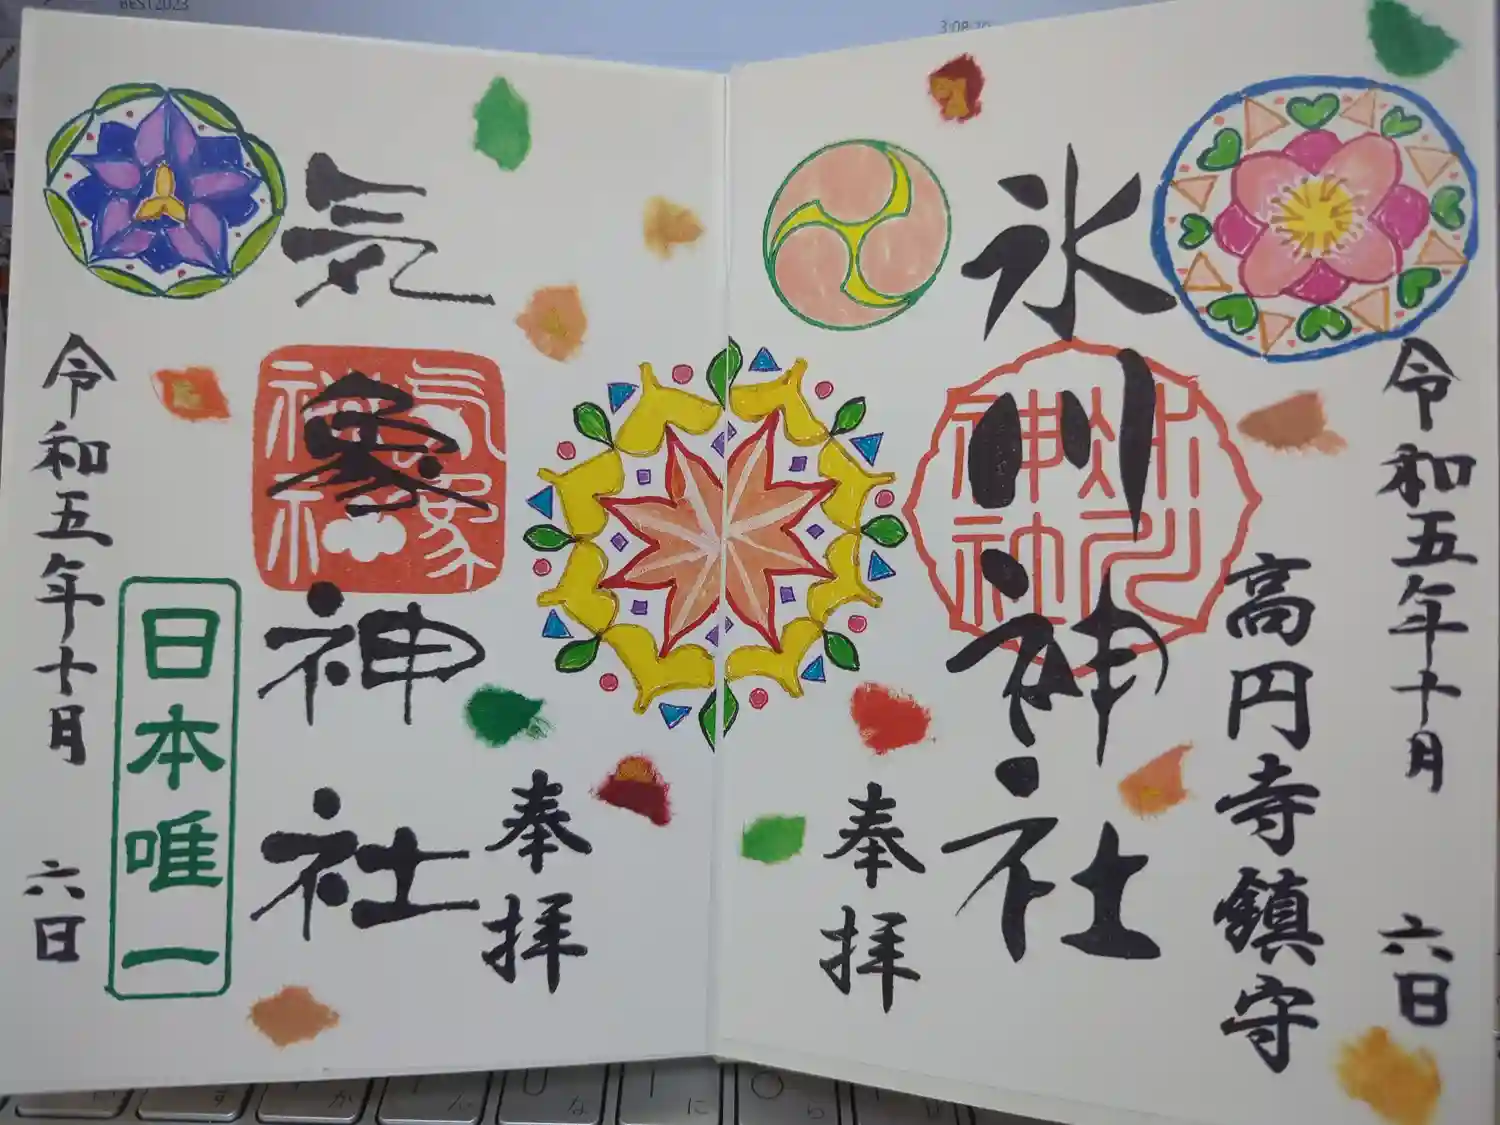 BEST2023
令和五年十月 六日
高円寺鎮守
氷川神社
氷川神社
奉拝
奉拝
気象神社
気象神社
日本唯一
令和五年十月 六日